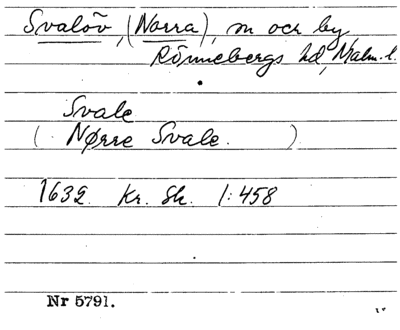 Svalöv, (Norra), sn och by,
Rönnebergs hd, Malm. l.
Svale
( Nørre Svale. )
1632. Kr. Sk. 1:458
Nr 5791.